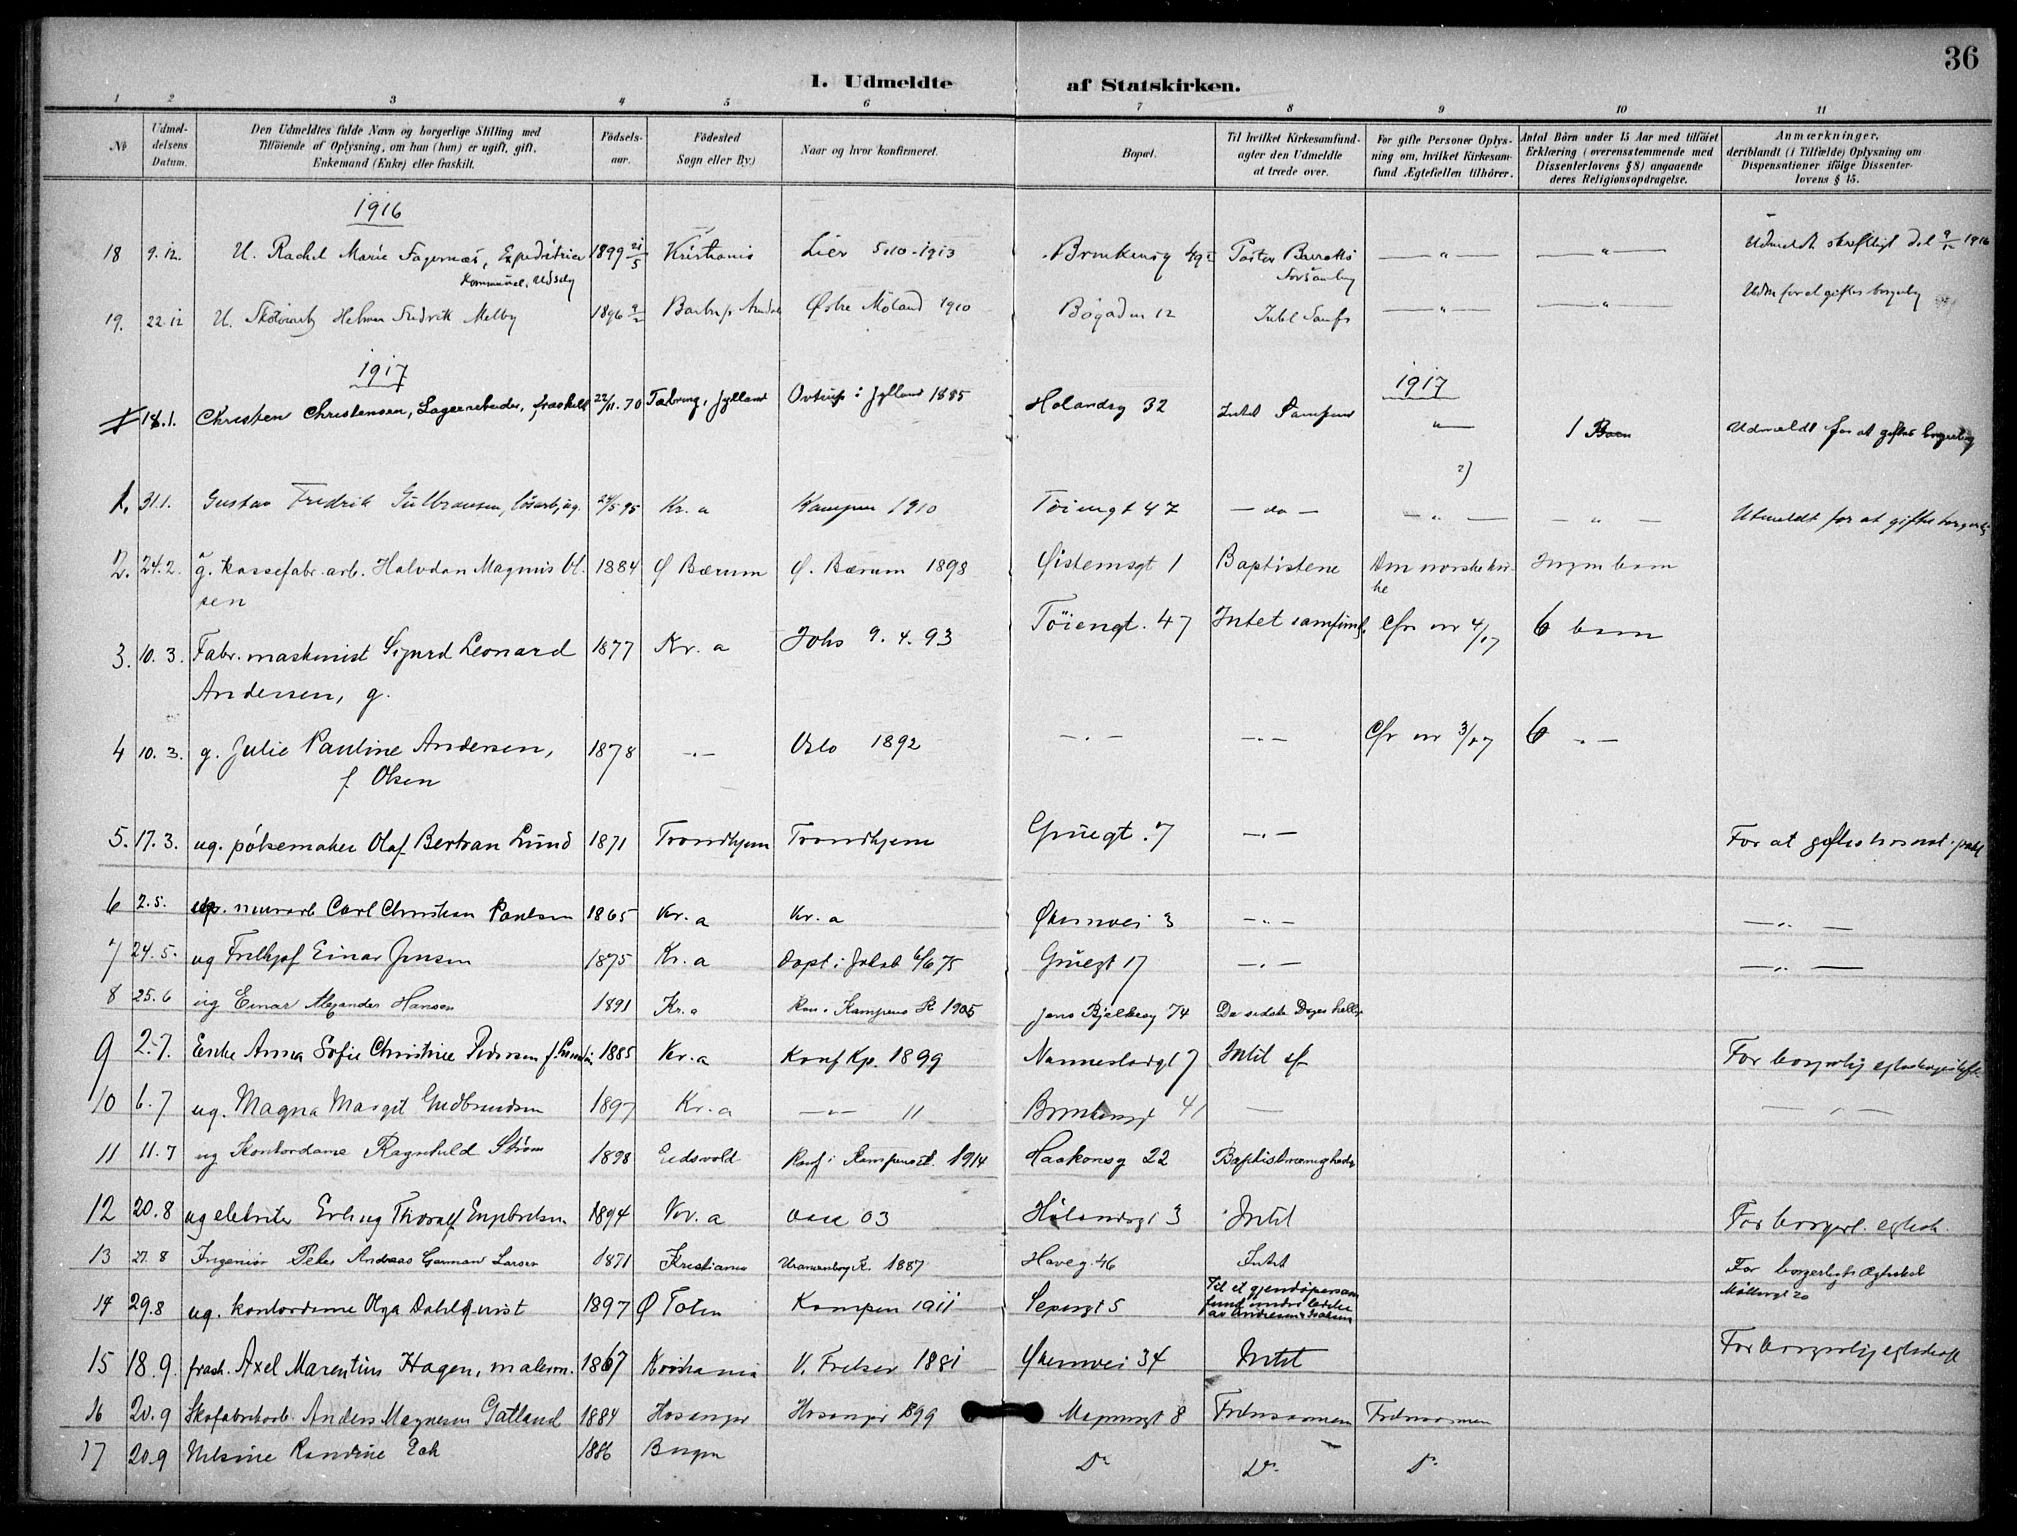 36
1. Udmeldte af Statskirken.
1 2 3 4 5 6 7 8 9 10 11
No
Udmel-
delsens
Datum.
Den Udmeldtes fulde Navn og borgerlige Stilling med
Tilføiende af Oplysning, om han (hun) er ugift, gift,
Enkemand (Enke) eller fraskilt.
Fødsels-
aar.
Fødested
Sogn eller By.)
Naar og hvor konfirmeret.
Bopæl.
Til hvilket Kirkesamfund-
agter den Udmeldte
at træde over.
For gifte Personer Oplys-
ning om, hvilket Kirkesam-
fund Ægtefællen tilhører.
Antal Børn under 15 Aar med tilføiet
Erklæring (overensstemmende med
Dissenterlovens § 8) angaaende
deres Religionsopdragelse.
Anmærkninger,
deriblandt (i Tilfælde) Oplysning om
Dispensationer ifølge Dissenter-
lovens § 15.
1916
18 9.12. U. Rachel Marie Fagernæs, Expeditrice 1899 21/5 Kristiania Lier 5/10-1913 Pastor Barratts — " — — " — Udmeldt skriftligt del 9/12 1916
Kommunal. Udsalg
19. 22.12 U. Helmer Fredrik Melby 1896 Østre Moland 1910 Bøgaden 12 Intet Samf. — " — — " — Udm for at giftes borgerlig
1917 1917
18.1. Christen Christensen, Lagerarbeider, fraskilt 22/11.70 Jylland Ovtrup i Jylland 1885 Holandsg 32 Intet Samfund — " — 1 Barn Udmeldt for at giftes borgerlig
2)
1. 31.1. Gustav Fredrik Gulbransen, løsarb, ug. 24/5 95 Kr.a Kampen 1910 Tøiengt 47 — do — — " — — " — Utmeldt for at giftes borgerlig
2. 24.2. g. kassefabr. arb. Halvdan Magnus Ol- 1884 Ø Bærum Ø. Bærum 1898 Øistensgt 1 Baptistene Den norske kir- Ingen barn
sen ke
3. 10.3. Fabr. maskinist Sigurd Leonard 1877 Kr.a Johs 9.4.93 Tøiengt. 47 Intet samfund. Cfr nr 4/17 6 barn
Andersen, g.
4 10.3. g. Julie Pauline Andersen, 1878 — " — Oslo 1892 — " — — " — Cfr nr 3/17 6 — " —
f. Olsen
5. 17.3. ug. pølsemaker Olaf Bertran Lund 1871 Trondhjem Trondhjem Grüegt. 7 — " — For at giftes hos not. publ
6 2.5. murarb Carl Christian Paulsen 1865 Kr.a Kr.a Økernvei 3 — " — — " —
7 24.5. ug Frithjof Einar Jensen 1875 Kr.a Døpt i Jakob 6/6 75 Grüegt 17 — " — — " —
8 25.6 ug Einar Alexander Hansen 1891 Kr.a Kon. i Kampens K 1905 Jens Bjelkesg 74 De sidste Dages hellige
9 2.7. Enke Anna Sofie Christine Pedersen f. 1885 Kr.a Konf Kp. 1899 Nannestadgt 7 Intet sf For borgerlig
10 6.7 ug. Magna Margit Gudbrandsen 1897 Kr.a — " — 11 41 — — " —
11 11.7 ug Kontordame Ragnhild Strøm 1898 Eidsvold Konf i Kampens K. 1914 Haakonsg 22
12 20.8 ug elektriker Erling Thoralf Engebretsen 1894 Kr.a 03 Hølandsgt 3 Intet For borgerl. egtesk.
13 27.8 Ingeniør Peter Andreas German Larsen 1871 Kristiania Uranienborg K. 1887 Haveg. 46 Intet For borgerligt Ægteskab
Møllergt 20
14 29.8 ug. kontordame Olga Dahlqvist 1897 Ø Toten Kampen 1911
15 18.9. frask. Axel Marentius Hagen, malerm. 1867 Kristiania V. Frelser 1881 Økernvei 34 Intet For borgerlig
16 20.9 Skofabrikarb. Anders Magnesen Gatland 1884 Hosanger Hosanger 1899 8
17 20.9 Nilsine Randine 1886 Bergen Do Do. Do.